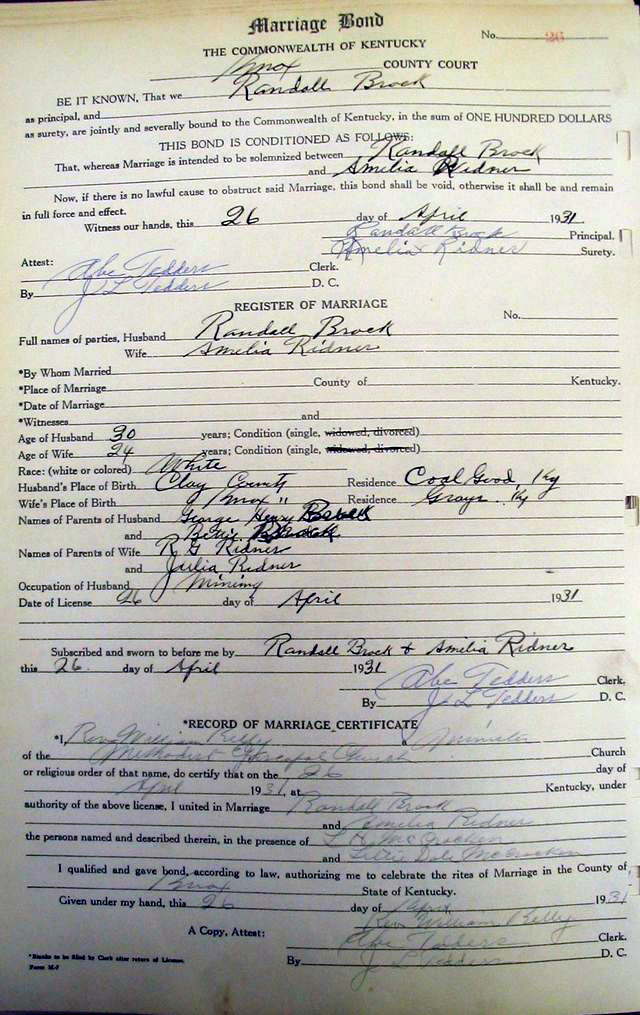 Marriage Bond
No. 26
THE COMMONWEALTH OF KENTUCKY
Knox COUNTY COURT
BE IT KNOWN, That we Randall Brock
as principal, and
as surety, are jointly and severally bound to the Commonwealth of Kentucky, in the sum of ONE HUNDRED DOLLARS
THIS BOND IS CONDITIONED AS FOLLOWS:
That, whereas Marriage is intended to be solemnized between Randall Brock
and Amelia Ridner
Now, if there is no lawful cause to obstruct said Marriage, this bond shall be void, otherwise it shall be and remain
in full force and effect.
Witness our hands, this 26 day of April 1931
Randall Brock Principal.
Amelia Ridner Surety.
Attest:
Abe Tedders Clerk.
By J L Tedders D. C.
REGISTER OF MARRIAGE
No.
Full names of parties, Husband Randall Brock
Wife Amelia Ridner
*By Whom Married
*Place of Marriage County of Kentucky.
*Date of Marriage
*Witnesses and
Age of Husband 30 years; Condition (single, widowed, divorced)
Age of Wife 24 years; Condition (single, widowed, divorced)
Race: (white or colored) White
Husband's Place of Birth Clay County Residence Coal Good, Ky
Wife's Place of Birth Knox " Residence Grays. Ky
Names of Parents of Husband George Henry Brock
and Brock
Names of Parents of Wife R G Ridner
and Julia Ridner
Occupation of Husband Mining
Date of License 26 day of April 1931
Subscribed and sworn to before me by Randall Brock & Amelia Ridner
this 26 day of April 1931
Abe Tedders Clerk.
By J L Tedders D. C.
*RECORD OF MARRIAGE CERTIFICATE
*I, Rev William Kelly a Minister
of the Methodist Episcopal Church Church
or religious order of that name, do certify that on the 26 day of
April 1931, at Kentucky, under
authority of the above license, I united in Marriage Randall Brock
and Amelia Ridner
the persons named and described therein, in the presence of McCracken
and McCracken
I qualified and gave bond, according to law, authorizing me to celebrate the rites of Marriage in the County of
Knox State of Kentucky.
Given under my hand, this 26 day of April 1931
Rev William Kelly
A Copy, Attest: Abe Tedders Clerk.
By J L Tedders D. C.
*Blanks to be filled by Clerk after return of License.
Form M-7